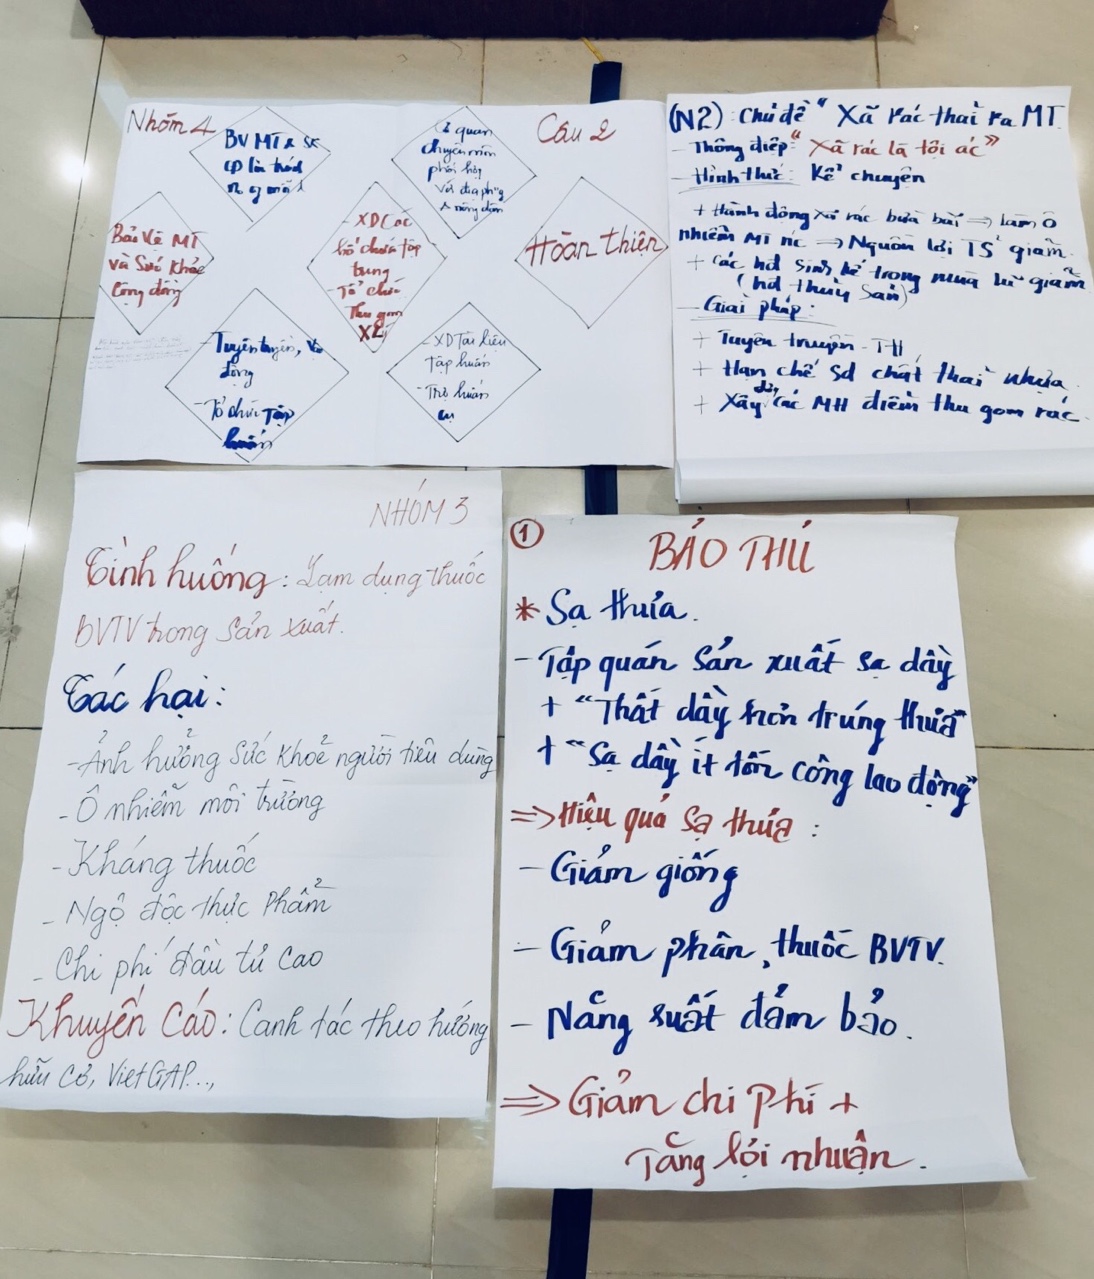 Nhóm 4
Câu 2
BV MT & SK
CĐ là trách
cơ quan
chuyên môn
phối hợp
với địa ph'g
& nông dân
Bảo Vệ MT
và Sức khỏe
Cộng đồng
- XD Các
hố chứa tập
trung
- Tổ chức
Thu gom
XL
Hoàn thiện
- Tuyên truyền, Vận
động
- Tổ chức Tập
huấn
- XD Tài liệu
Tập huấn
- Tập huấn
(N2): Chủ đề "Xã rác thải ra MT
- Thông điệp: "Xã rác là tội ác"
- Hình thức: Kể chuyện
+ Hành động xã rác bừa bãi => làm ô
nhiễm MT nc => Nguồn lợi TS giảm
+ Các hđ sinh kế trong mùa lũ giảm
(hđ thủy sản)
- Giải pháp:
+ Tuyên truyền - TH
+ Hạn chế sd chất thải nhựa
+ Xây dựng các MH điểm thu gom rác.
NHÓM 3
Tình huống: Lạm dụng thuốc
BVTV trong sản xuất.
Tác hại:
- Ảnh hưởng sức khoẻ người tiêu dùng
- Ô nhiễm môi trường
- Kháng thuốc
- Ngộ độc thực phẩm
- Chi phí đầu tư cao
Khuyến cáo: Canh tác theo hướng
hữu cơ, VietGAP...,
① BẢO THỦ
* Sạ thưa.
- Tập quán sản xuất sạ dầy
+ "Thất dầy hơn trúng thưa"
+ "Sạ dầy ít tốn công lao động"
=> Hiệu quả sạ thưa:
- Giảm giống
- Giảm phân, thuốc BVTV.
- Năng suất đảm bảo.
=> Giảm chi phí +
Tăng lợi nhuận.